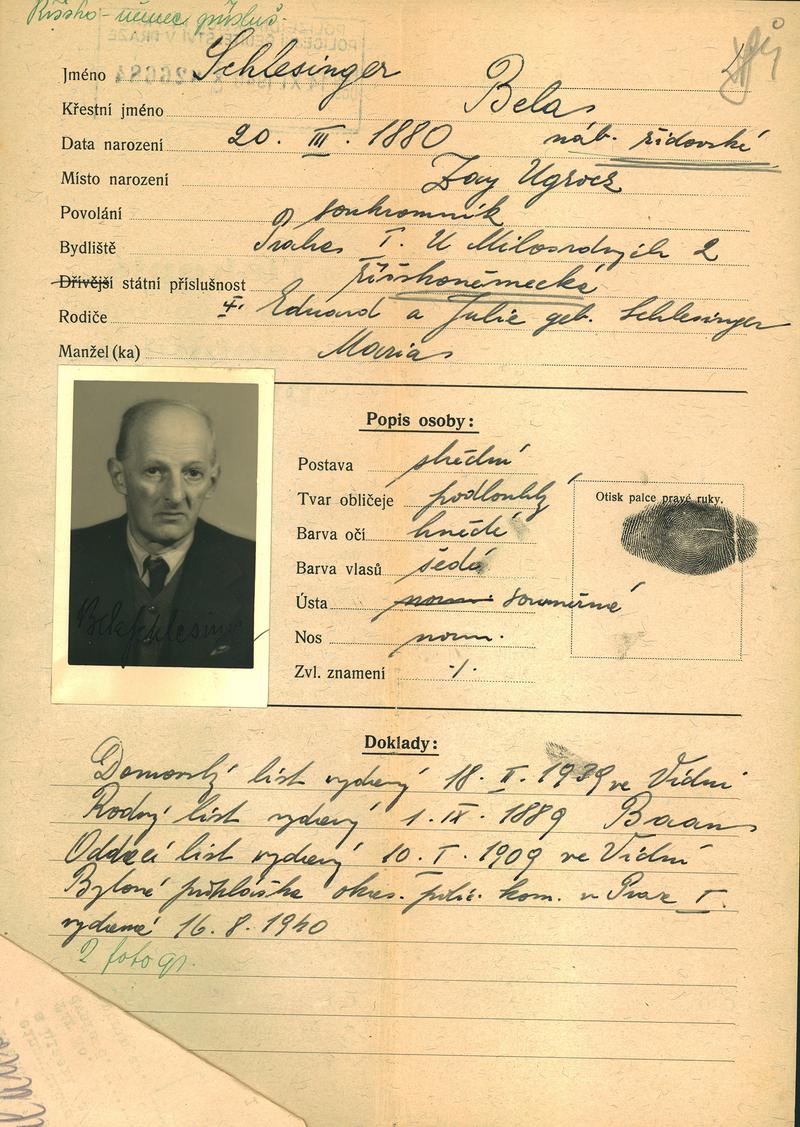 Říšsko-němec. přísluš.
Jméno Schlesinger
Křestní jméno Bela
Data narození 20. III. 1880 náb. židovské
Místo narození Zay Ugrocz
Povolání soukromník
Bydliště Praha I. U Milosrdných 2
Dřívější státní příslušnost říšskoněmecká
Rodiče Eduard a Julie geb. Schlesinger
Manžel (ka) Maria
Popis osoby:
Postava střední
Tvar obličeje podlouhlý
Barva očí hnědé
Barva vlasů šedá
Ústa norm. souměrné
Nos norm.
Zvl. znamení ·/.
Otisk palce pravé ruky.
Bela Schlesinger
Doklady:
Domovský list vydaný 18. II. 1939 ve Vídni
Rodný list vydaný 1. IX. 1889 Baan
Oddací list vydaný 10. I. 1909 ve Vídni
Bytové přihláška okres. polic. kom. v Praze I.
vydané 16. 8. 1940
2 fotogr.